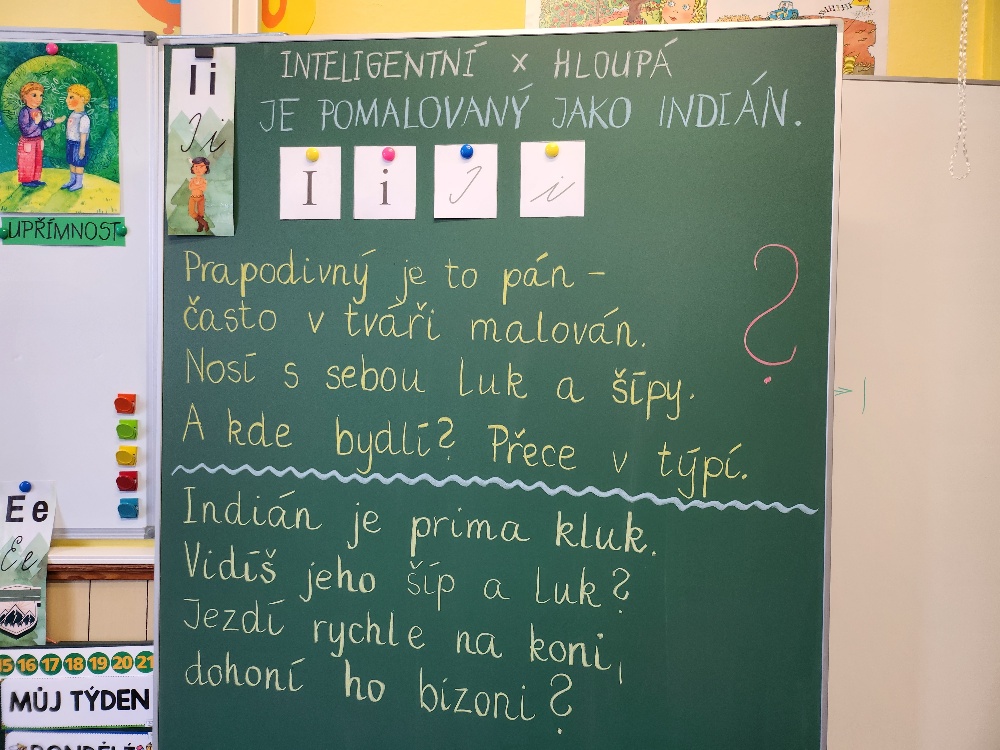 INTELIGENTNÍ x HLOUPÁ
JE POMALOVANÝ JAKO INDIÁN.
I i
I i
I i I i
UPŘÍMNOST
Prapodivný je to pán -
často v tváři malován.
Nosí s sebou luk a šípy.
A kde bydlí? Přece v týpí.
?
Indián je prima kluk.
Vidíš jeho šíp a luk?
Jezdí rychle na koni,
dohoní ho bizoni?
E e
E e
15 16 17 18 19 20 21
MŮJ TÝDEN
PONDĚLÍ